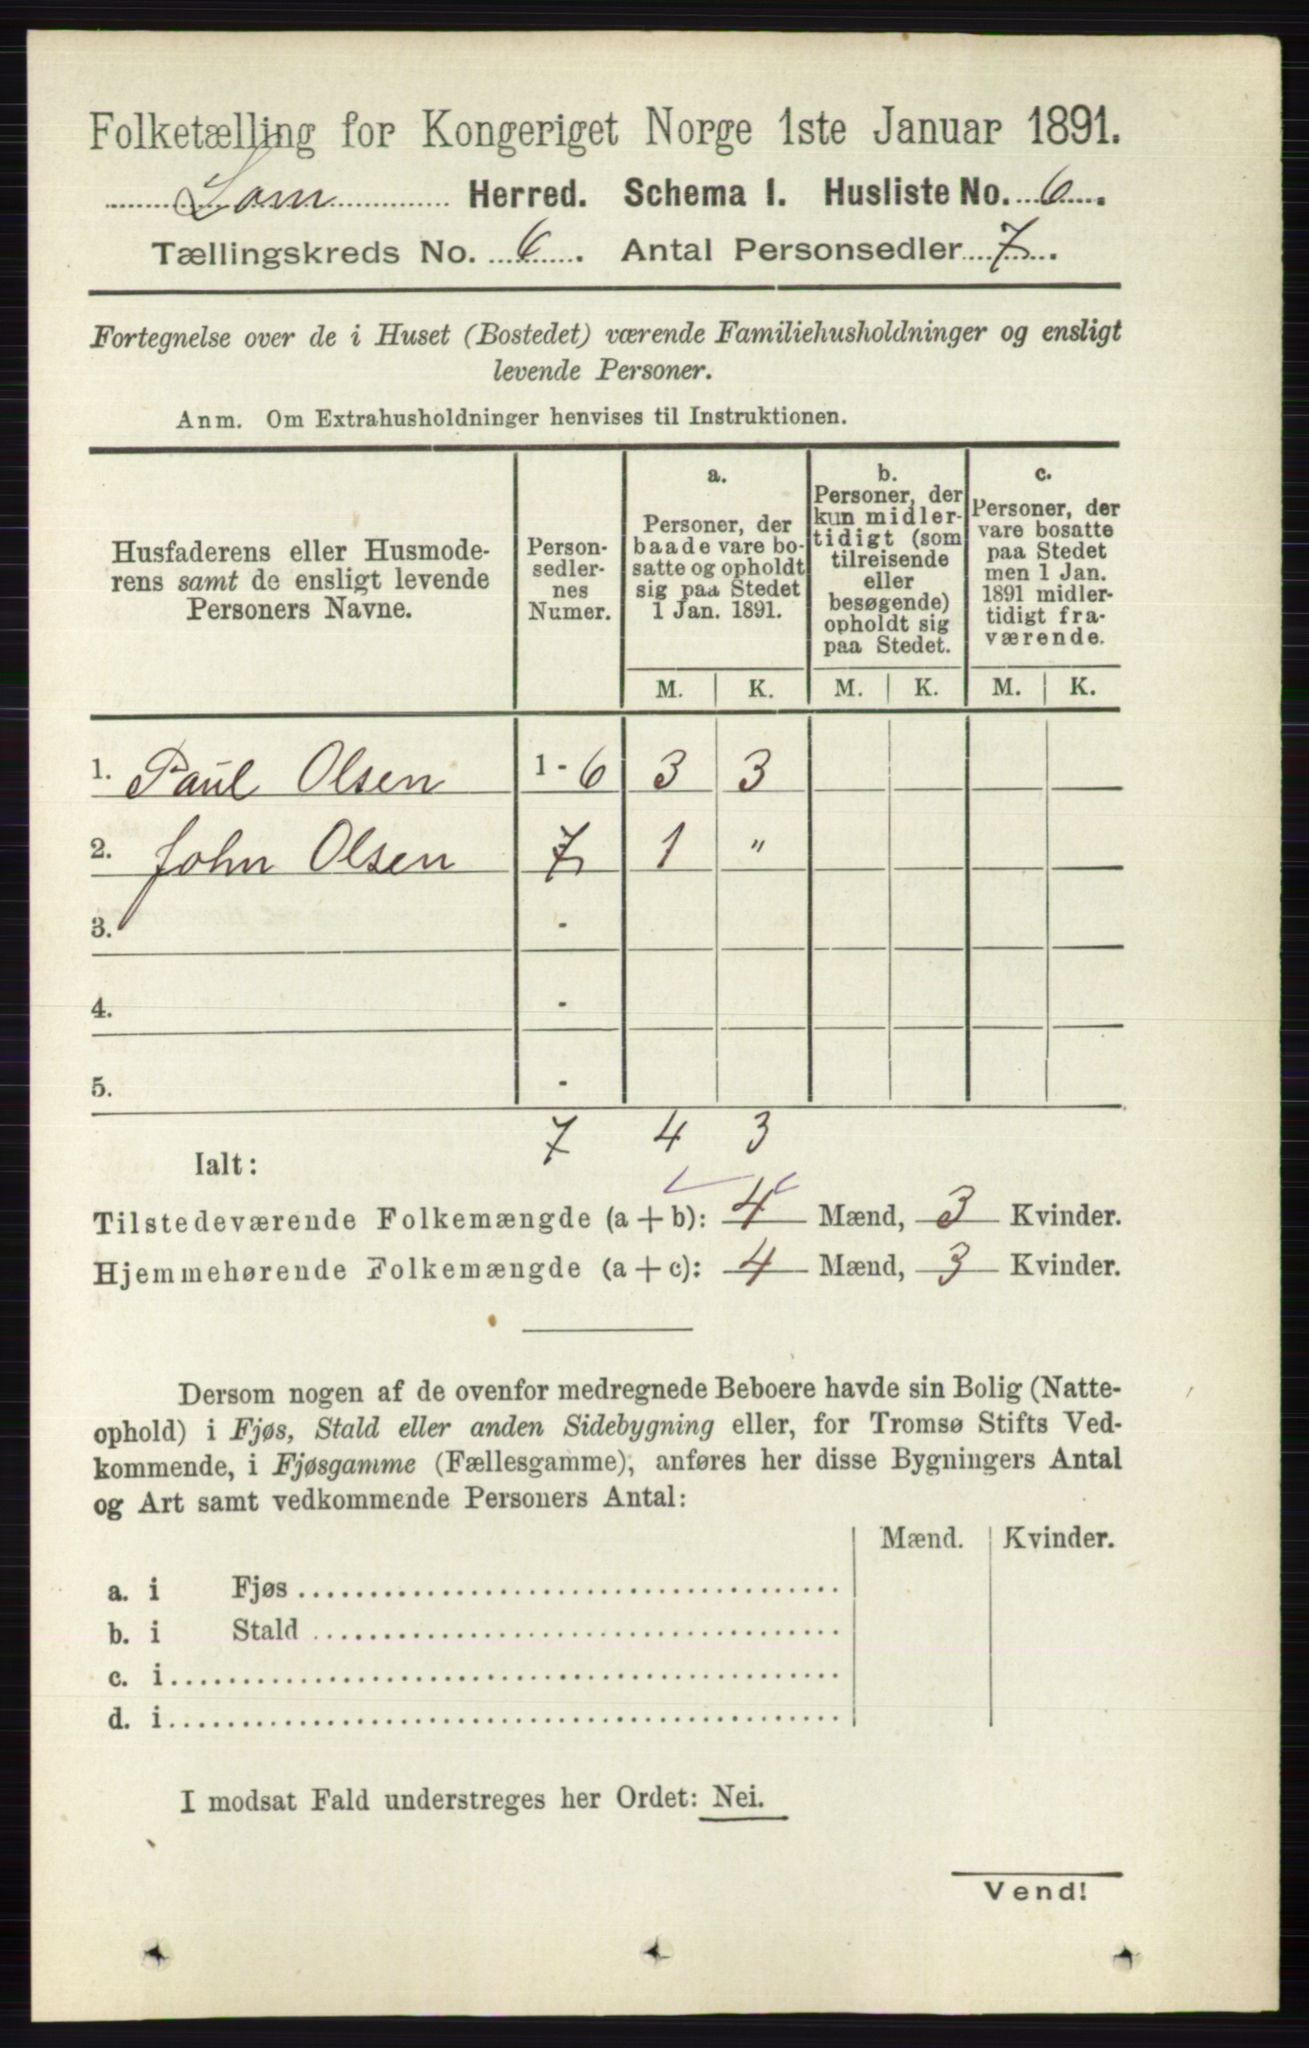 Folketælling for Kongeriget Norge 1ste Januar 1891.
Lom Herred. Schema I. Husliste No. 6.
Tællingskreds No. 6. Antal Personsedler 7.
Fortegnelse over de i Huset (Bostedet) værende Familiehusholdninger og ensligt
levende Personer.
Anm. Om Extrahusholdninger henvises til Instruktionen.
Husfaderens eller Husmode-
rens samt de ensligt levende
Personers Navne.
Person-
sedler-
nes
Numer.
a.
Personer, der
baade vare bo-
satte og opholdt
sig paa Stedet
1 Jan. 1891.
b.
Personer, der
kun midler-
tidigt (som
tilreisende
eller
besøgende)
opholdt sig
paa Stedet.
c.
Personer, der
vare bosatte
paa Stedet
men 1 Jan.
1891 midler-
tidigt fra-
værende.
M. K. M. K. M. K.
1. Paul Olsen 1 - 6 3 3
2. John Olsen 7 1 "
3. -
4. -
5. -
Ialt: 7 4 3
Tilstedeværende Folkemængde (a + b): 4 Mænd, 3 Kvinder.
Hjemmehørende Folkemængde (a + c): 4 Mænd, 3 Kvinder.
Dersom nogen af de ovenfor medregnede Beboere havde sin Bolig (Natte-
ophold) i Fjøs, Stald eller anden Sidebygning eller, for Tromsø Stifts Ved-
kommende, i Fjøsgamme (Fællesgamme), anføres her disse Bygningers Antal
og Art samt vedkommende Personers Antal:
Mænd. Kvinder.
a. i Fjøs
b. i Stald
c. i
d. i
I modsat Fald understreges her Ordet: Nei.
Vend!